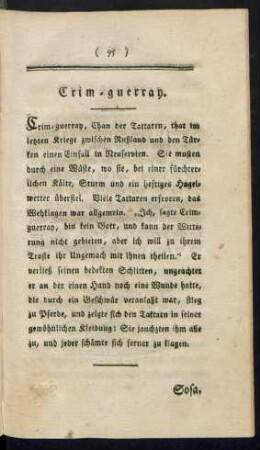 ( 55 )
Crim-guerray.
Crim-guerray, Chan der Tattarn, that im
letzten Kriege zwischen Rußland und den Tür-
ken einen Einfall in Neuservien. Sie musten
durch eine Wüste, wo sie, bei einer fürchter-
lichen Kälte, Sturm und ein heftiges Hagel-
wetter überfiel. Viele Tattaren erfroren, das
Wehklagen war allgemein. „Ich, sagte Crim-
guerray, bin kein Gott, und kann der Witte-
rung nicht gebieten, aber ich will zu ihrem
Troste ihr Ungemach mit ihnen theilen.“ Er
verließ seinen bedekten Schlitten, ungeachtet
er an der einen Hand noch eine Wunde hatte,
die durch ein Geschwür veranlaßt war, stieg
zu Pferde, und zeigte sich den Tattarn in seiner
gewöhnlichen Kleidung: Sie jauchzten ihm alle
zu, und jeder schämte sich ferner zu klagen.
Sosa,